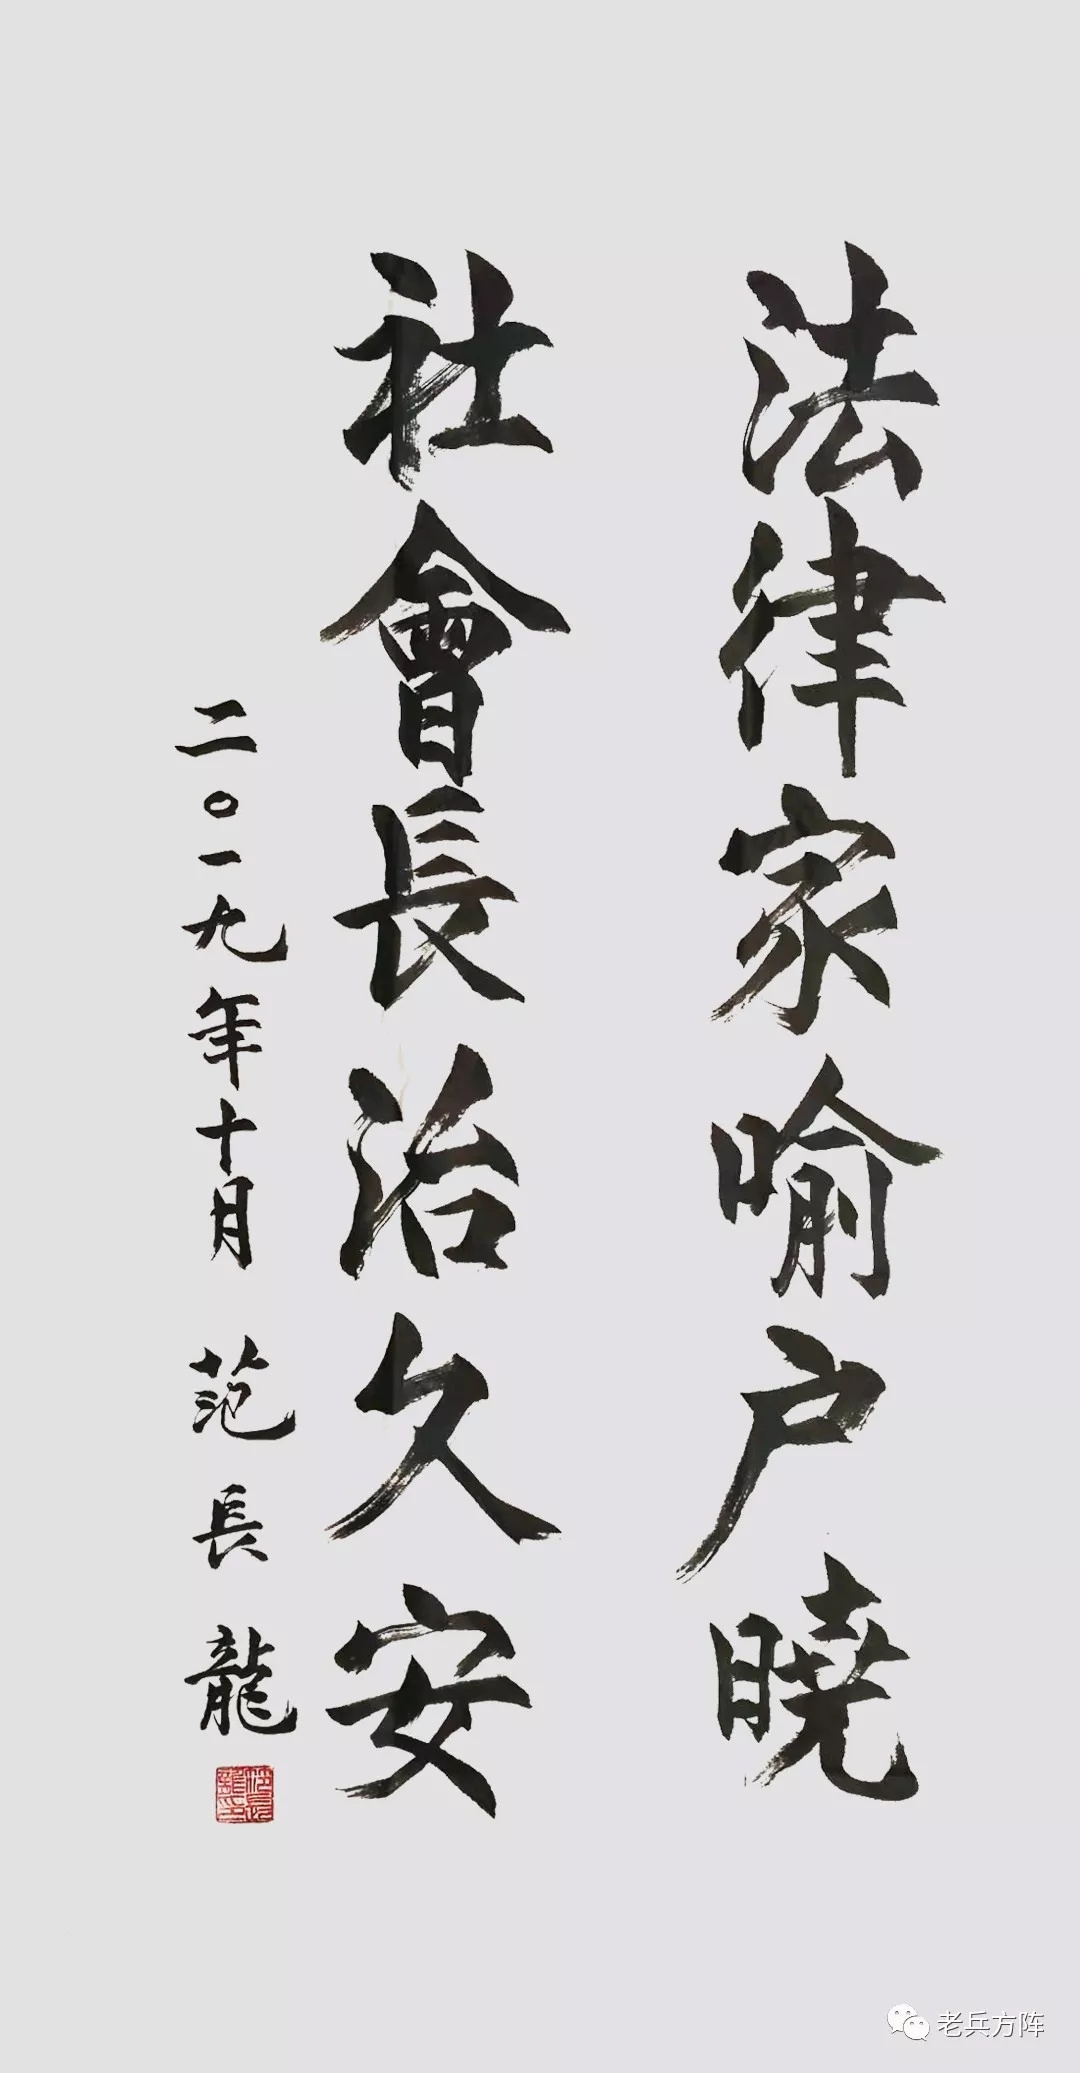 法律家喻户曉
社會長治久安
二〇一九年十月 范長龍
老兵方阵